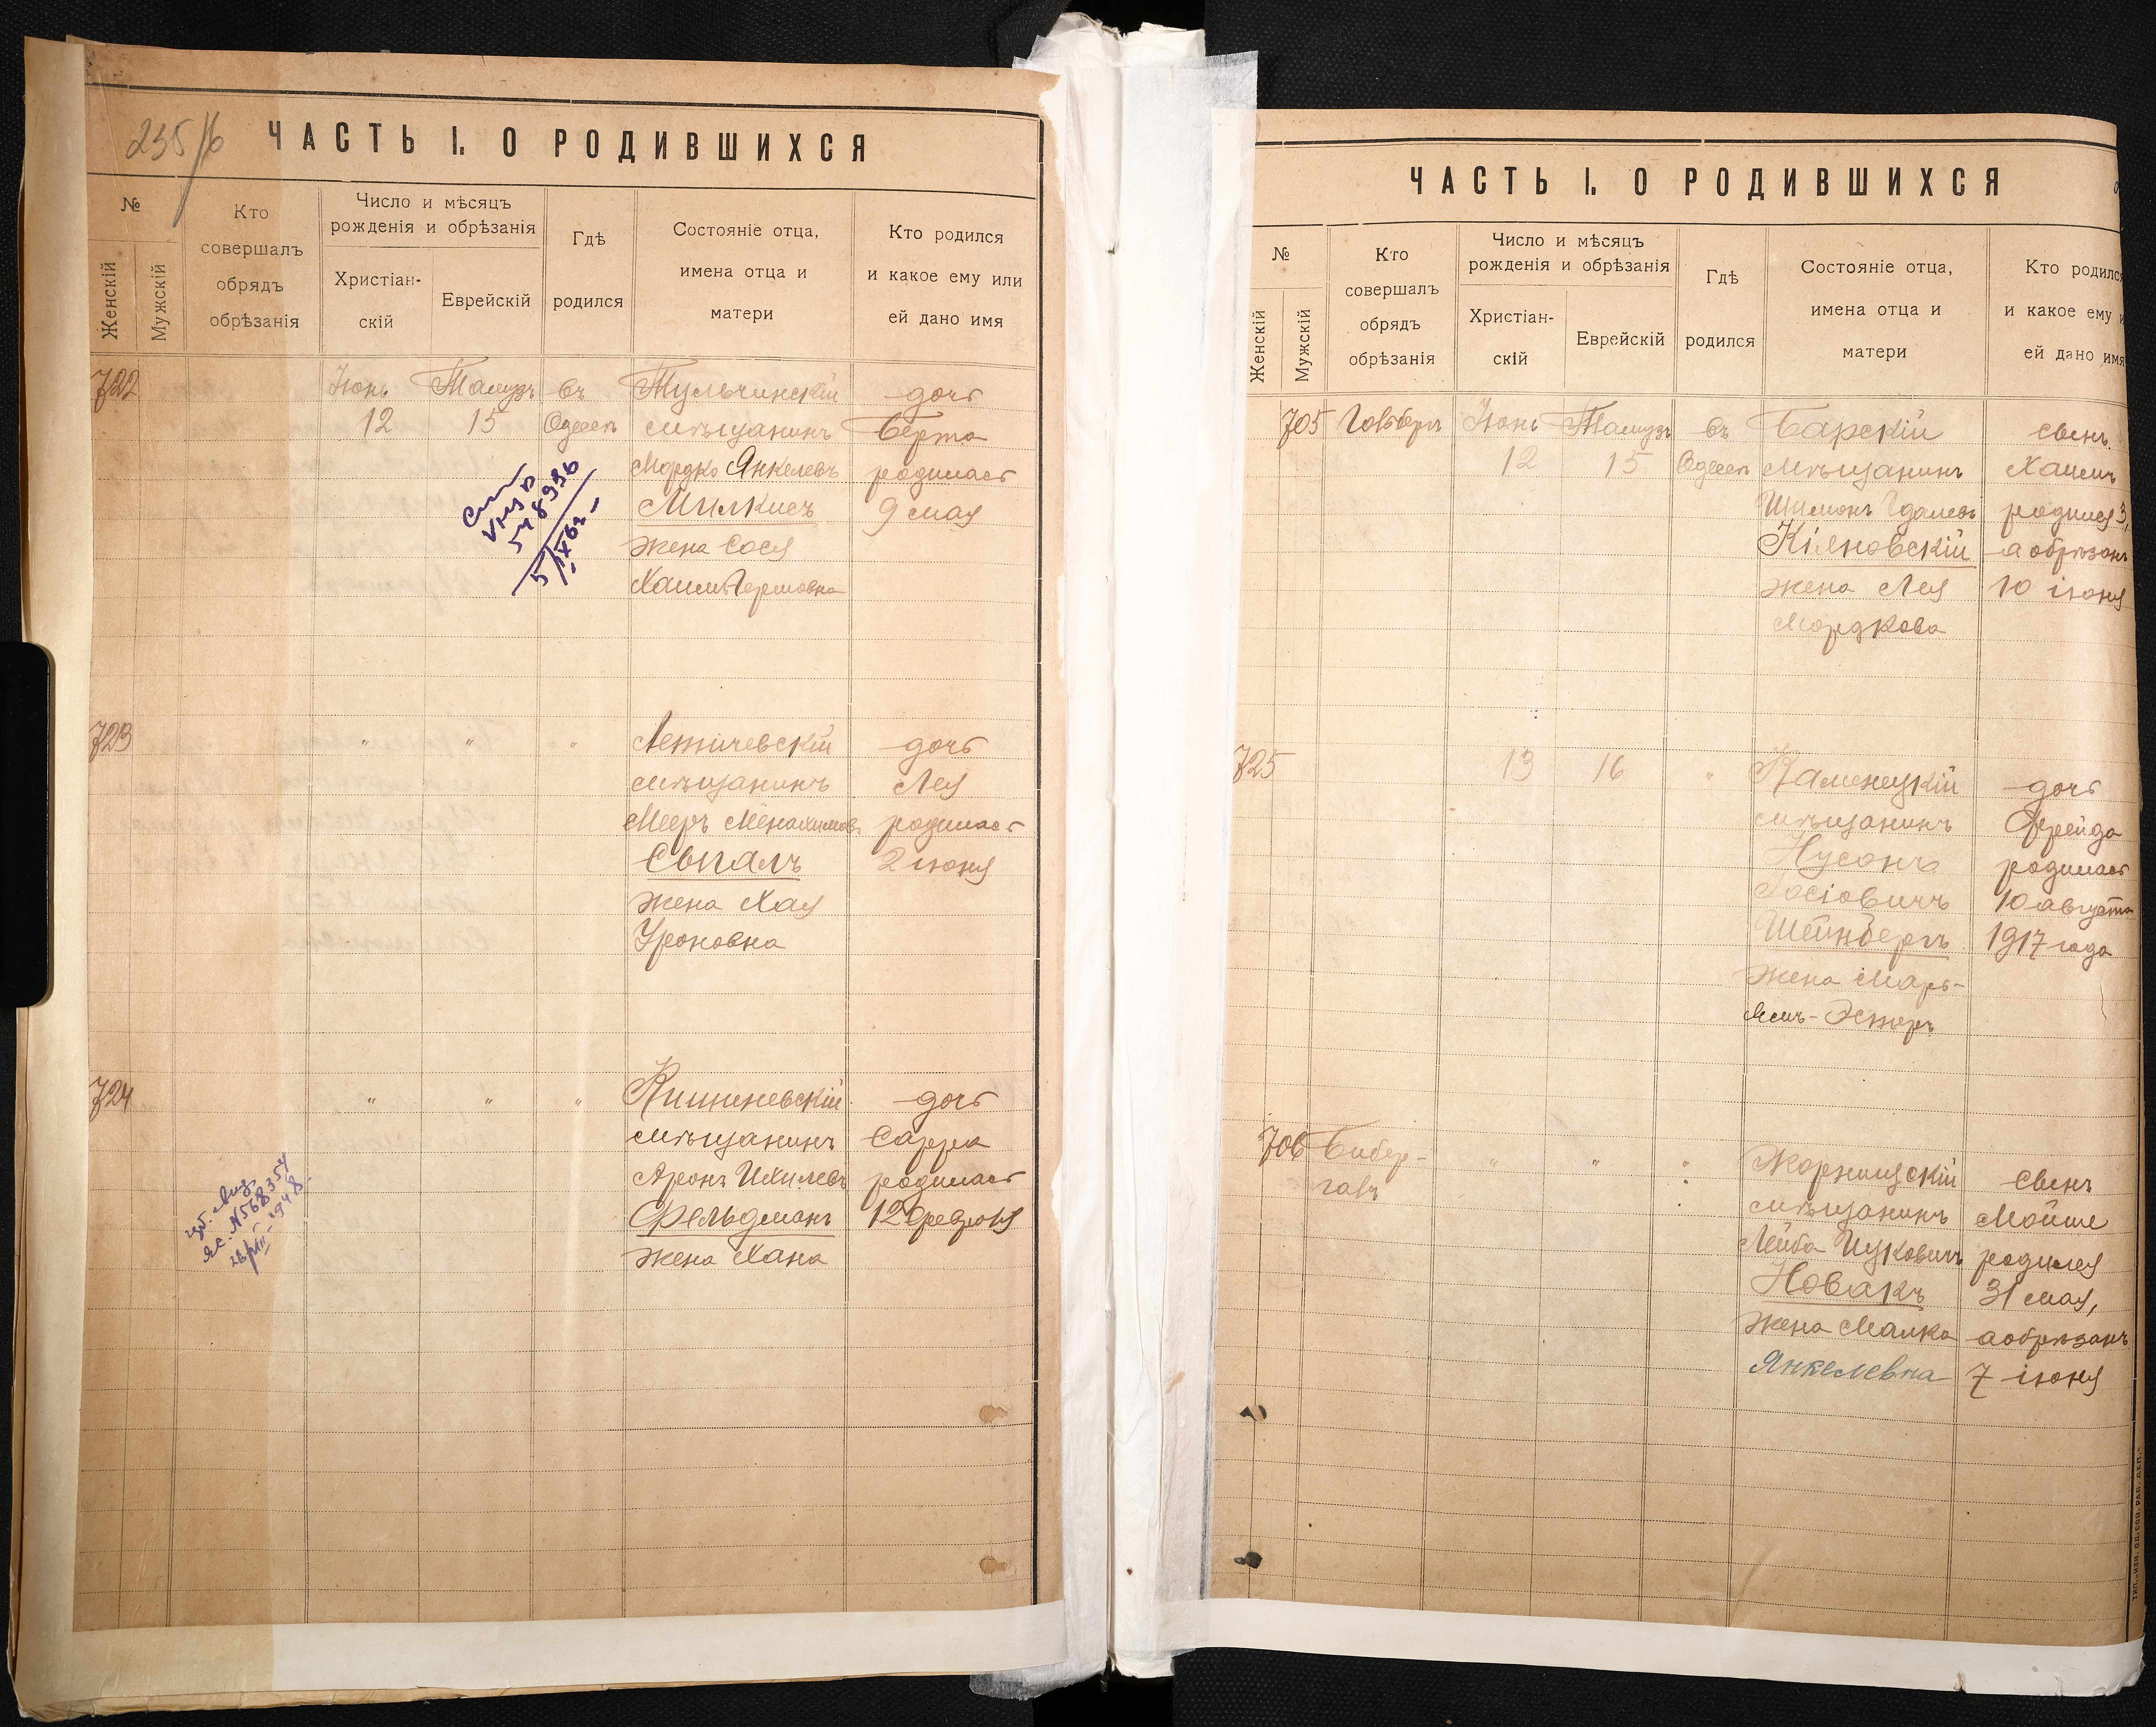 235/б
ЧАСТЬ I. О РОДИВШИХСЯ
№
Женскій
Мужскій
Кто
совершалъ
обрядъ
обрѣзанія
Число и мѣсяцъ
рожденія и обрѣзанія
Христіан-
скій
Еврейскій
Гдѣ
родился
Состояніе отца,
имена отца и
матери
Кто родился
и какое ему или
ей дано имя
722
Іюнь
12
Тамузъ
15
въ
Одессѣ
Тульчинскій
мѣщанинъ
Мордко Янкелевъ
Милкисъ
жена Сося
Хаим Гершовна
дочь
Берта
родилась
9 мая
548996
723
"
"
"
Летичевскій
мѣщанинъ
Мееръ Менахимов.
Сыгалъ
жена Хая
Уроновна
дочь
Лея
родилась
2 іюня
724
"
"
"
Кишиневскій
мѣщанинъ
Аронъ Ихилевъ
Фельдманъ
жена Хана
дочь
Сарра
родилась
12 февраля
N568354
ЧАСТЬ I. О РОДИВШИХСЯ
№
Женскій
Мужскій
Кто
совершалъ
обрядъ
обрѣзанія
Число и мѣсяцъ
рожденія и обрѣзанія
Христіан-
скій
Еврейскій
Гдѣ
родился
Состояніе отца,
имена отца и
матери
Кто родился
и какое ему и
ей дано имя
705
Іюнь
12
Тамузъ
15
въ
Одессѣ
Барскій
мѣщанинъ
Шимонъ Гдалевъ
Кіяновскій
жена Лея
Мордкова
сынъ
Хаимъ
родился 3,
а обрѣзанъ
10 іюня
725
13
16
"
Каменецкій
мѣщанинъ
Нусонъ
Іосіовичъ
Шейнбергъ
жена Марь-
ямъ-Эстеръ
дочь
Фрейда
родилась
10 августа
1917 года
706
Бибер-
галъ
"
"
"
мѣщанинъ
Лейба Ицковичъ
Новакъ
жена Малка
Янкелевна
сынъ
Мойше
родился
31 мая,
а обрѣзанъ
7 іюня